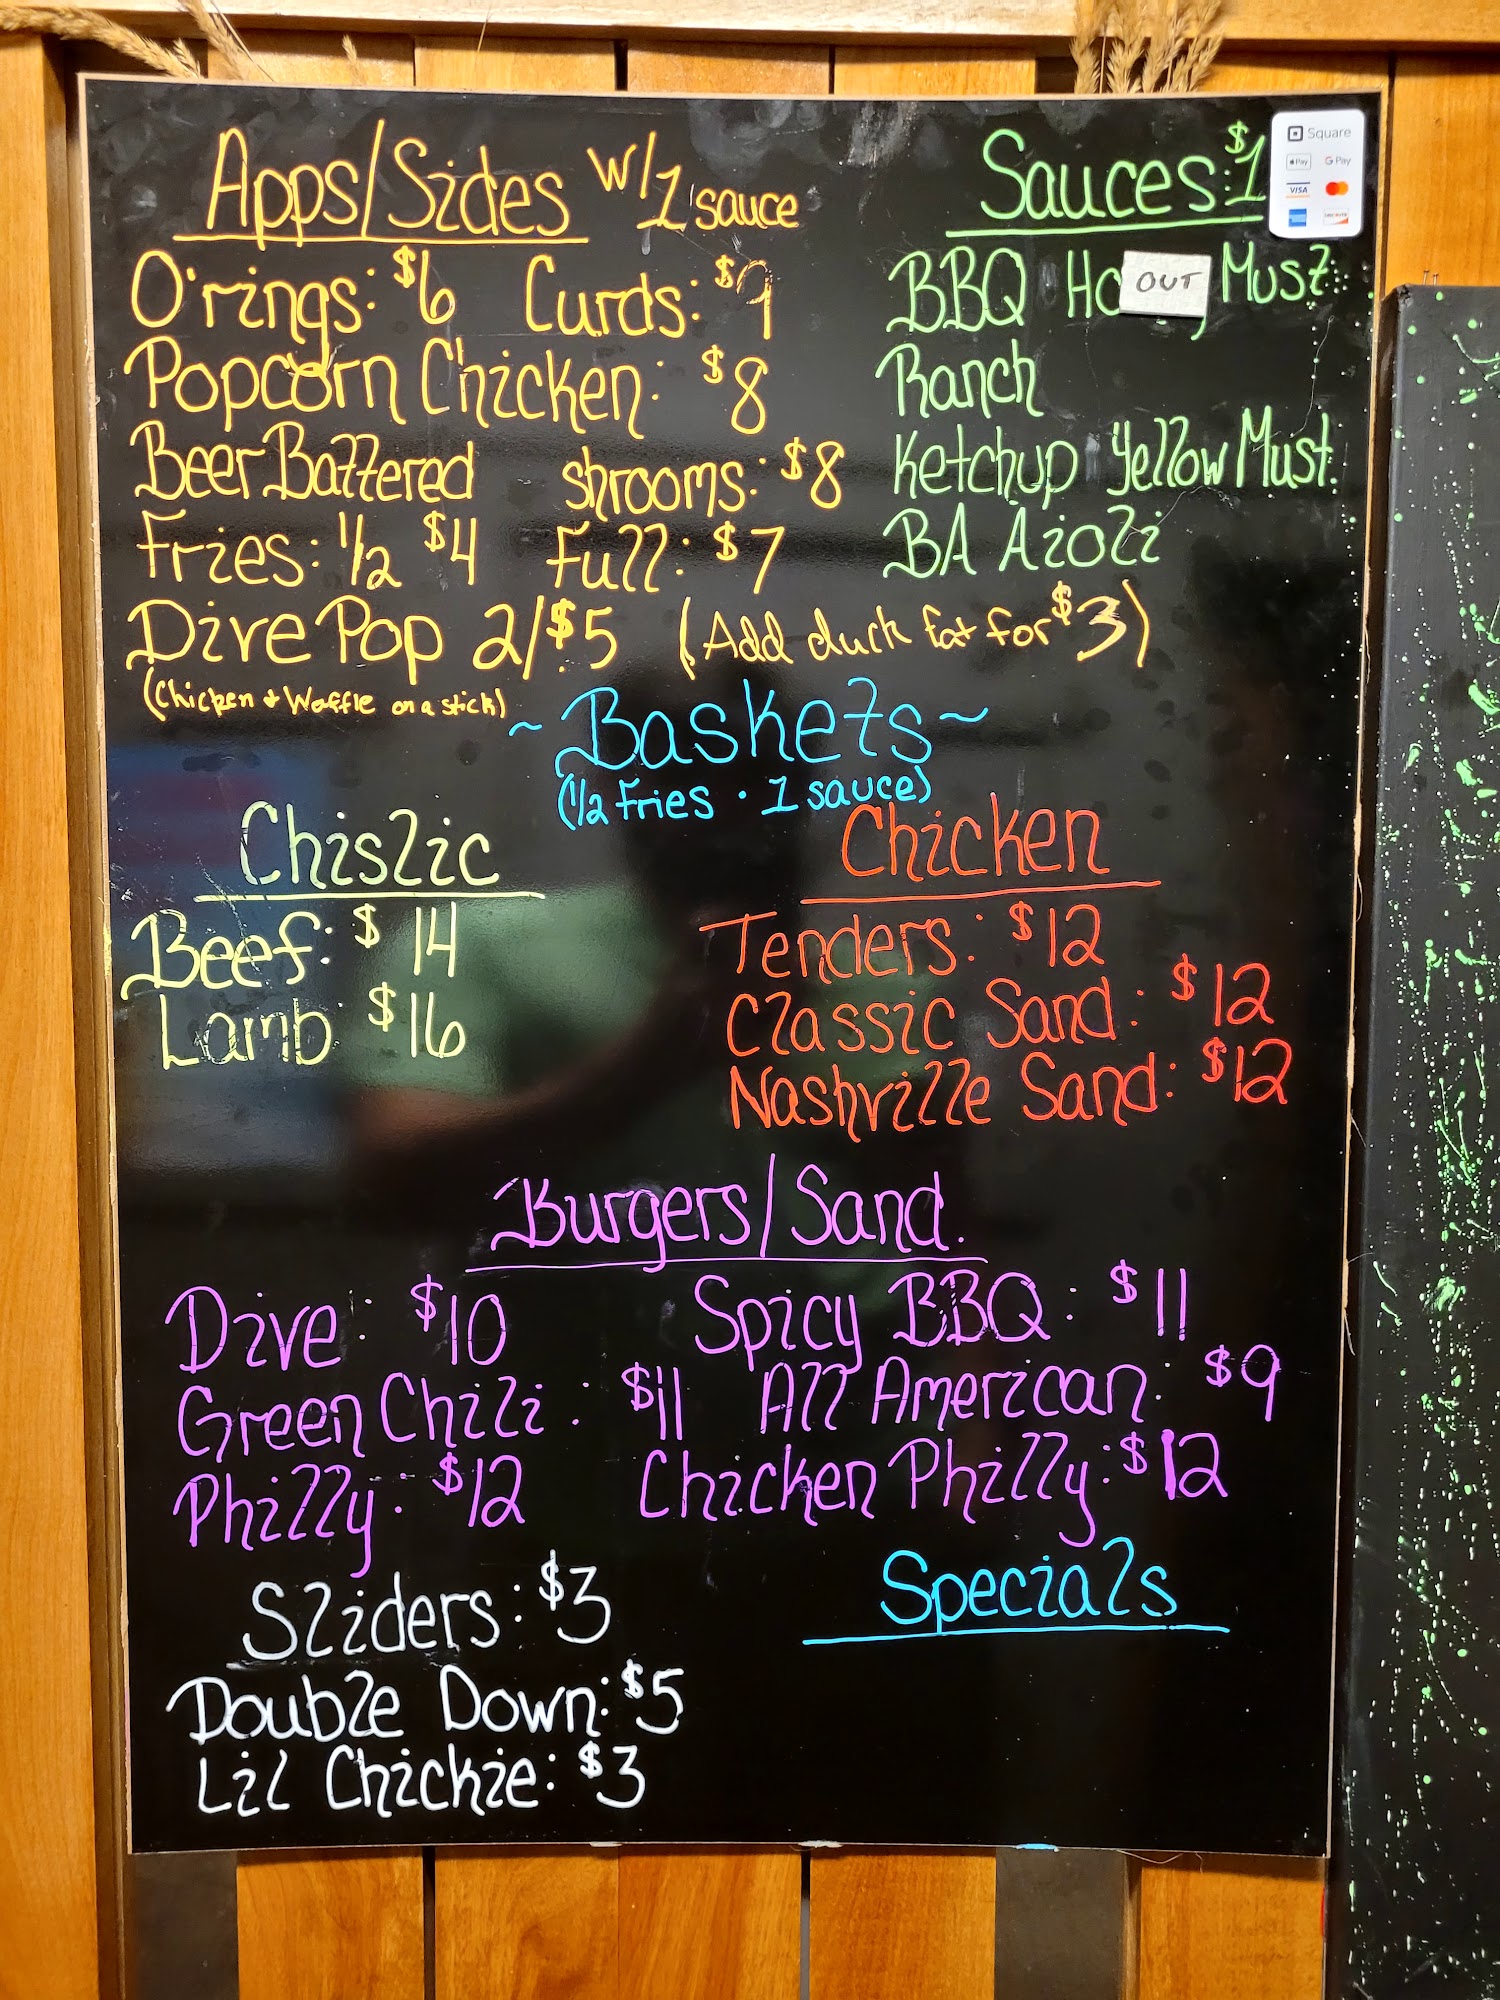 Apps/Sides w/1 sauce
O'rings: $6 Curds: $9
Popcorn Chicken: $8
Beer Battered shrooms: $8
Fries: 1/2 $4 Full: $7
Dive Pop 2/$5 (Add duck fat for $3)
(Chicken + Waffle on a stick)
Sauces: $1
Square
Pay G Pay
VISA
BBQ OUT Must.
Ranch
Ketchup Yellow Must.
BA Aioli
~Baskets~
(1/2 Fries • 1 sauce)
Chislic
Beef: $14
Lamb $16
Chicken
Tenders: $12
Classic Sand: $12
Nashville Sand: $12
Burgers/Sand.
Dive: $10 Spicy BBQ: $11
Green Chili: $11 All American: $9
Philly: $12 Chicken Philly: $12
Sliders: $3
Double Down: $5
Lil Chickie: $3
Specials